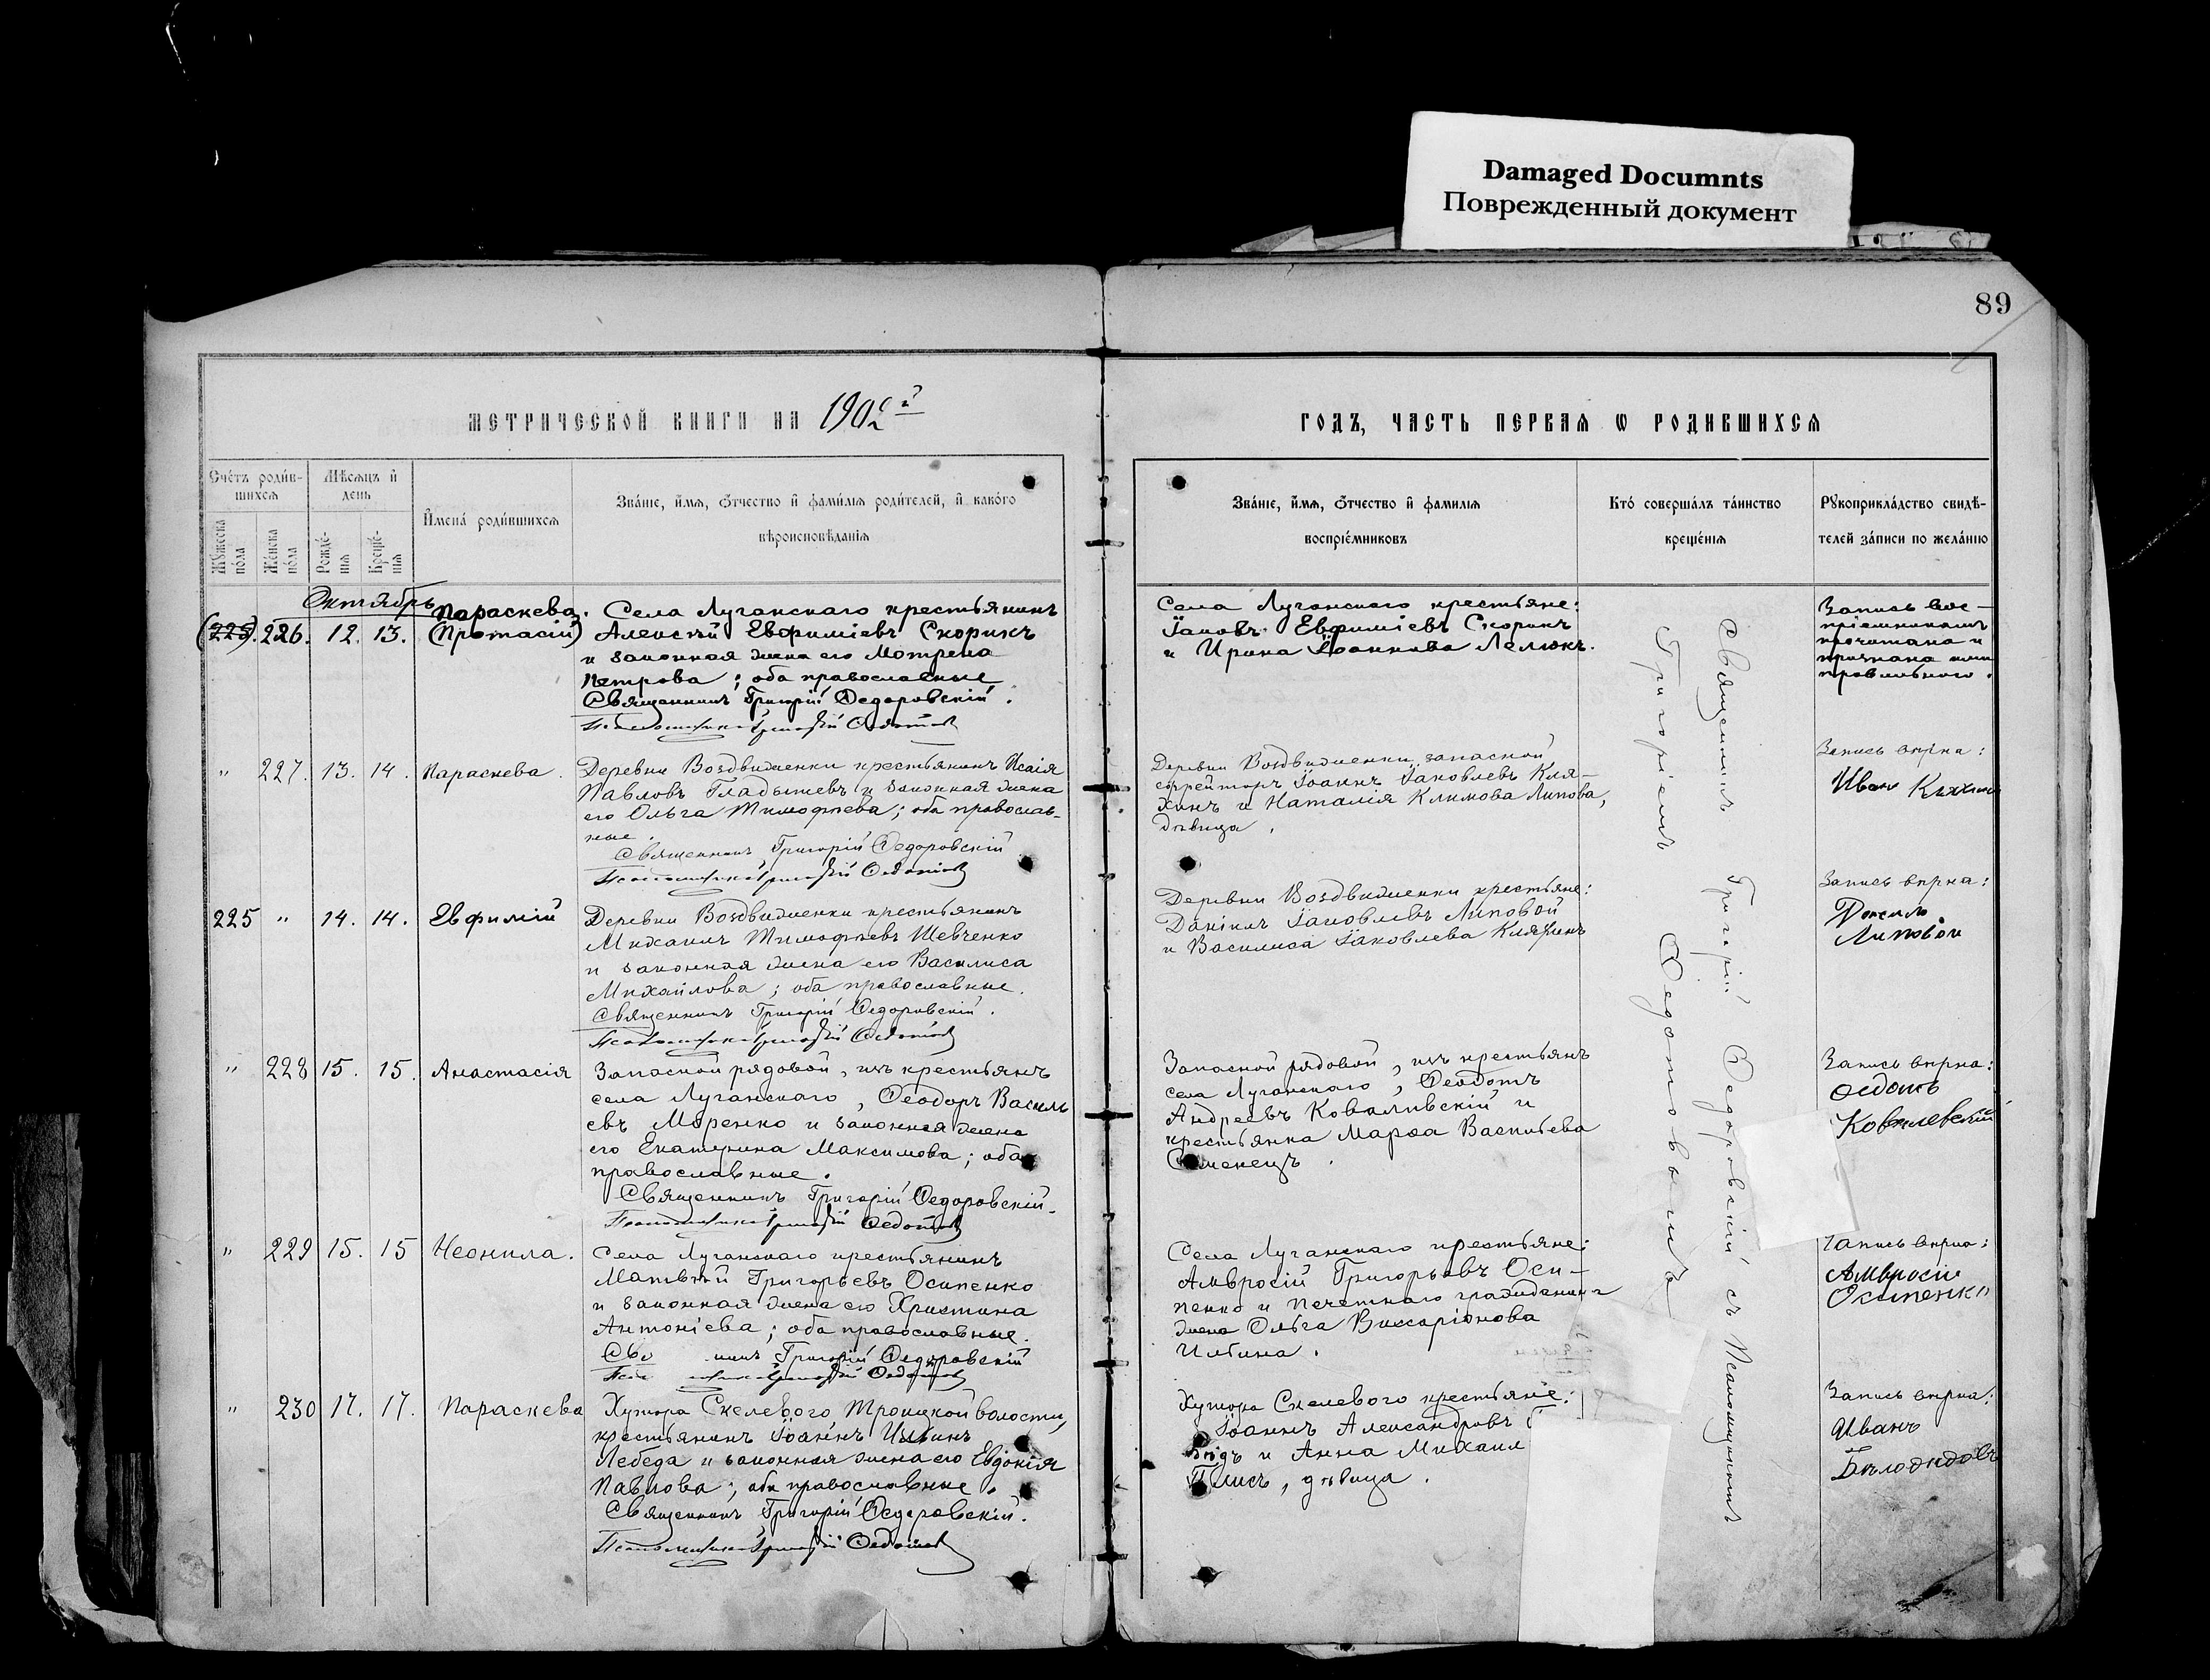 Damaged Documnts
Поврежденный документ
89
МЕТРИЧЕСКОЙ КНИГИ НА 1902й
ГОДЪ, ЧАСТЬ ПЕРВАЯ Ѡ РОДИВШИХСЯ
Счетъ родив-
шихся
Мѣсяцъ и
день
Имена родившихся
Званіе, имя, отчество и фамилія родителей, и какого
вѣроисповѣданія
Мужеска
пола
Женска
пола
Рожде-
нія
Креще-
нія
Званіе, имя, отчество и фамилія
воспріемниковъ
Кто совершалъ таинство
крещенія
Рукоприкладство свидѣ-
телей записи по желанію
Октябрь
(225). 226. 12. 13. Параскева.
(Протасій)
Села Луганскаго крестьянинъ
Алексѣй Евфиміевъ Скорикъ
и законная жена его Матрена
Петрова; оба православные
Священникъ Григорій Ѳедоровскій.
Псаломщикъ Григорій Ѳедотов
Села Луганскаго крестьяне:
Іаковъ Евфиміевъ Скорикъ
и Ирина Іоаннова Лелюкъ.
Запись вос-
пріемникамъ
прочитана и
признана ими
правильною.
" 227. 13. 14. Параскева.
Деревни Воздвиженки крестьянинъ Исаія
Павловъ Гладышевъ и законная жена
его Ольга Тимофѣева; оба православ-
ные.
Священникъ Григорій Ѳедоровскій
Псаломщикъ Григорій Ѳедотов
Деревни Воздвиженки запасной
ефрейторъ Іоаннъ Іаковлевъ Кля-
хинъ и Наталія Климова Липова,
дѣвица.
Запись вѣрна:
Иванъ Кляхинъ
225 " 14. 14. Евфимій
Деревни Воздвиженки крестьянинъ
Михаилъ Тимофѣевъ Шевченко
и законная жена его Василиса
Михайлова; оба православные.
Священникъ Григорій Ѳедоровскій.
Псаломщикъ Григорій Ѳедотов
Деревни Воздвиженки крестьяне:
Даніилъ Іаковлевъ Липовой
и Василиса Іаковлева Кляхинъ
Запись вѣрна:
Данилъ
Липовой
" 228 15. 15. Анастасія
Запасной рядовой, изъ крестьянъ
села Луганскаго, Ѳеодоръ Василь
евъ Моренко и законная жена
его Екатерина Максимова; оба
православные.
Священникъ Григорій Ѳедоровскій.
Псаломщикъ Григорій Ѳедотов
Запасной рядовой, изъ крестьянъ
села Луганскаго, Ѳеодотъ
Андреевъ Коваливскій и
крестьянка Марѳа Васильева
Семенецъ.
Запись вѣрна:
Ѳедотъ
Ковалевскій
" 229 15. 15 Неонила.
Села Луганскаго крестьянинъ
Матвѣй Григорьевъ Осипенко
и законная жена его Христина
Антоніева; оба православные.
Свя никъ Григорій Ѳедоровскій
Псаломщикъ Григорій Ѳедотов
Села Луганскаго крестьяне:
Амвросій Григорьевъ Оси-
пенко и почетнаго гражданина
жена Ольга Виссаріонова
Ильина.
Запись вѣрна:
Амвросій
Осипенко
" 230 17. 17. Параскева
Хутора Скелевого Троицкой волости,
крестьянинъ Іоаннъ Ильинъ
Лебеда и законная жена его Евдокія
Павлова; оба православные.
Священникъ Григорій Ѳедоровскій.
Псаломщикъ Григорій Ѳедотов
Хутора Скелевого крестьяне:
Іоаннъ Александровъ
и Анна Михаил
дѣвица.
Запись вѣрна:
Иванъ
Бѣлодѣдовъ
Священникъ Григорій Ѳедоровскій съ Псаломщикомъ
Григоріемъ Ѳедотовымъ